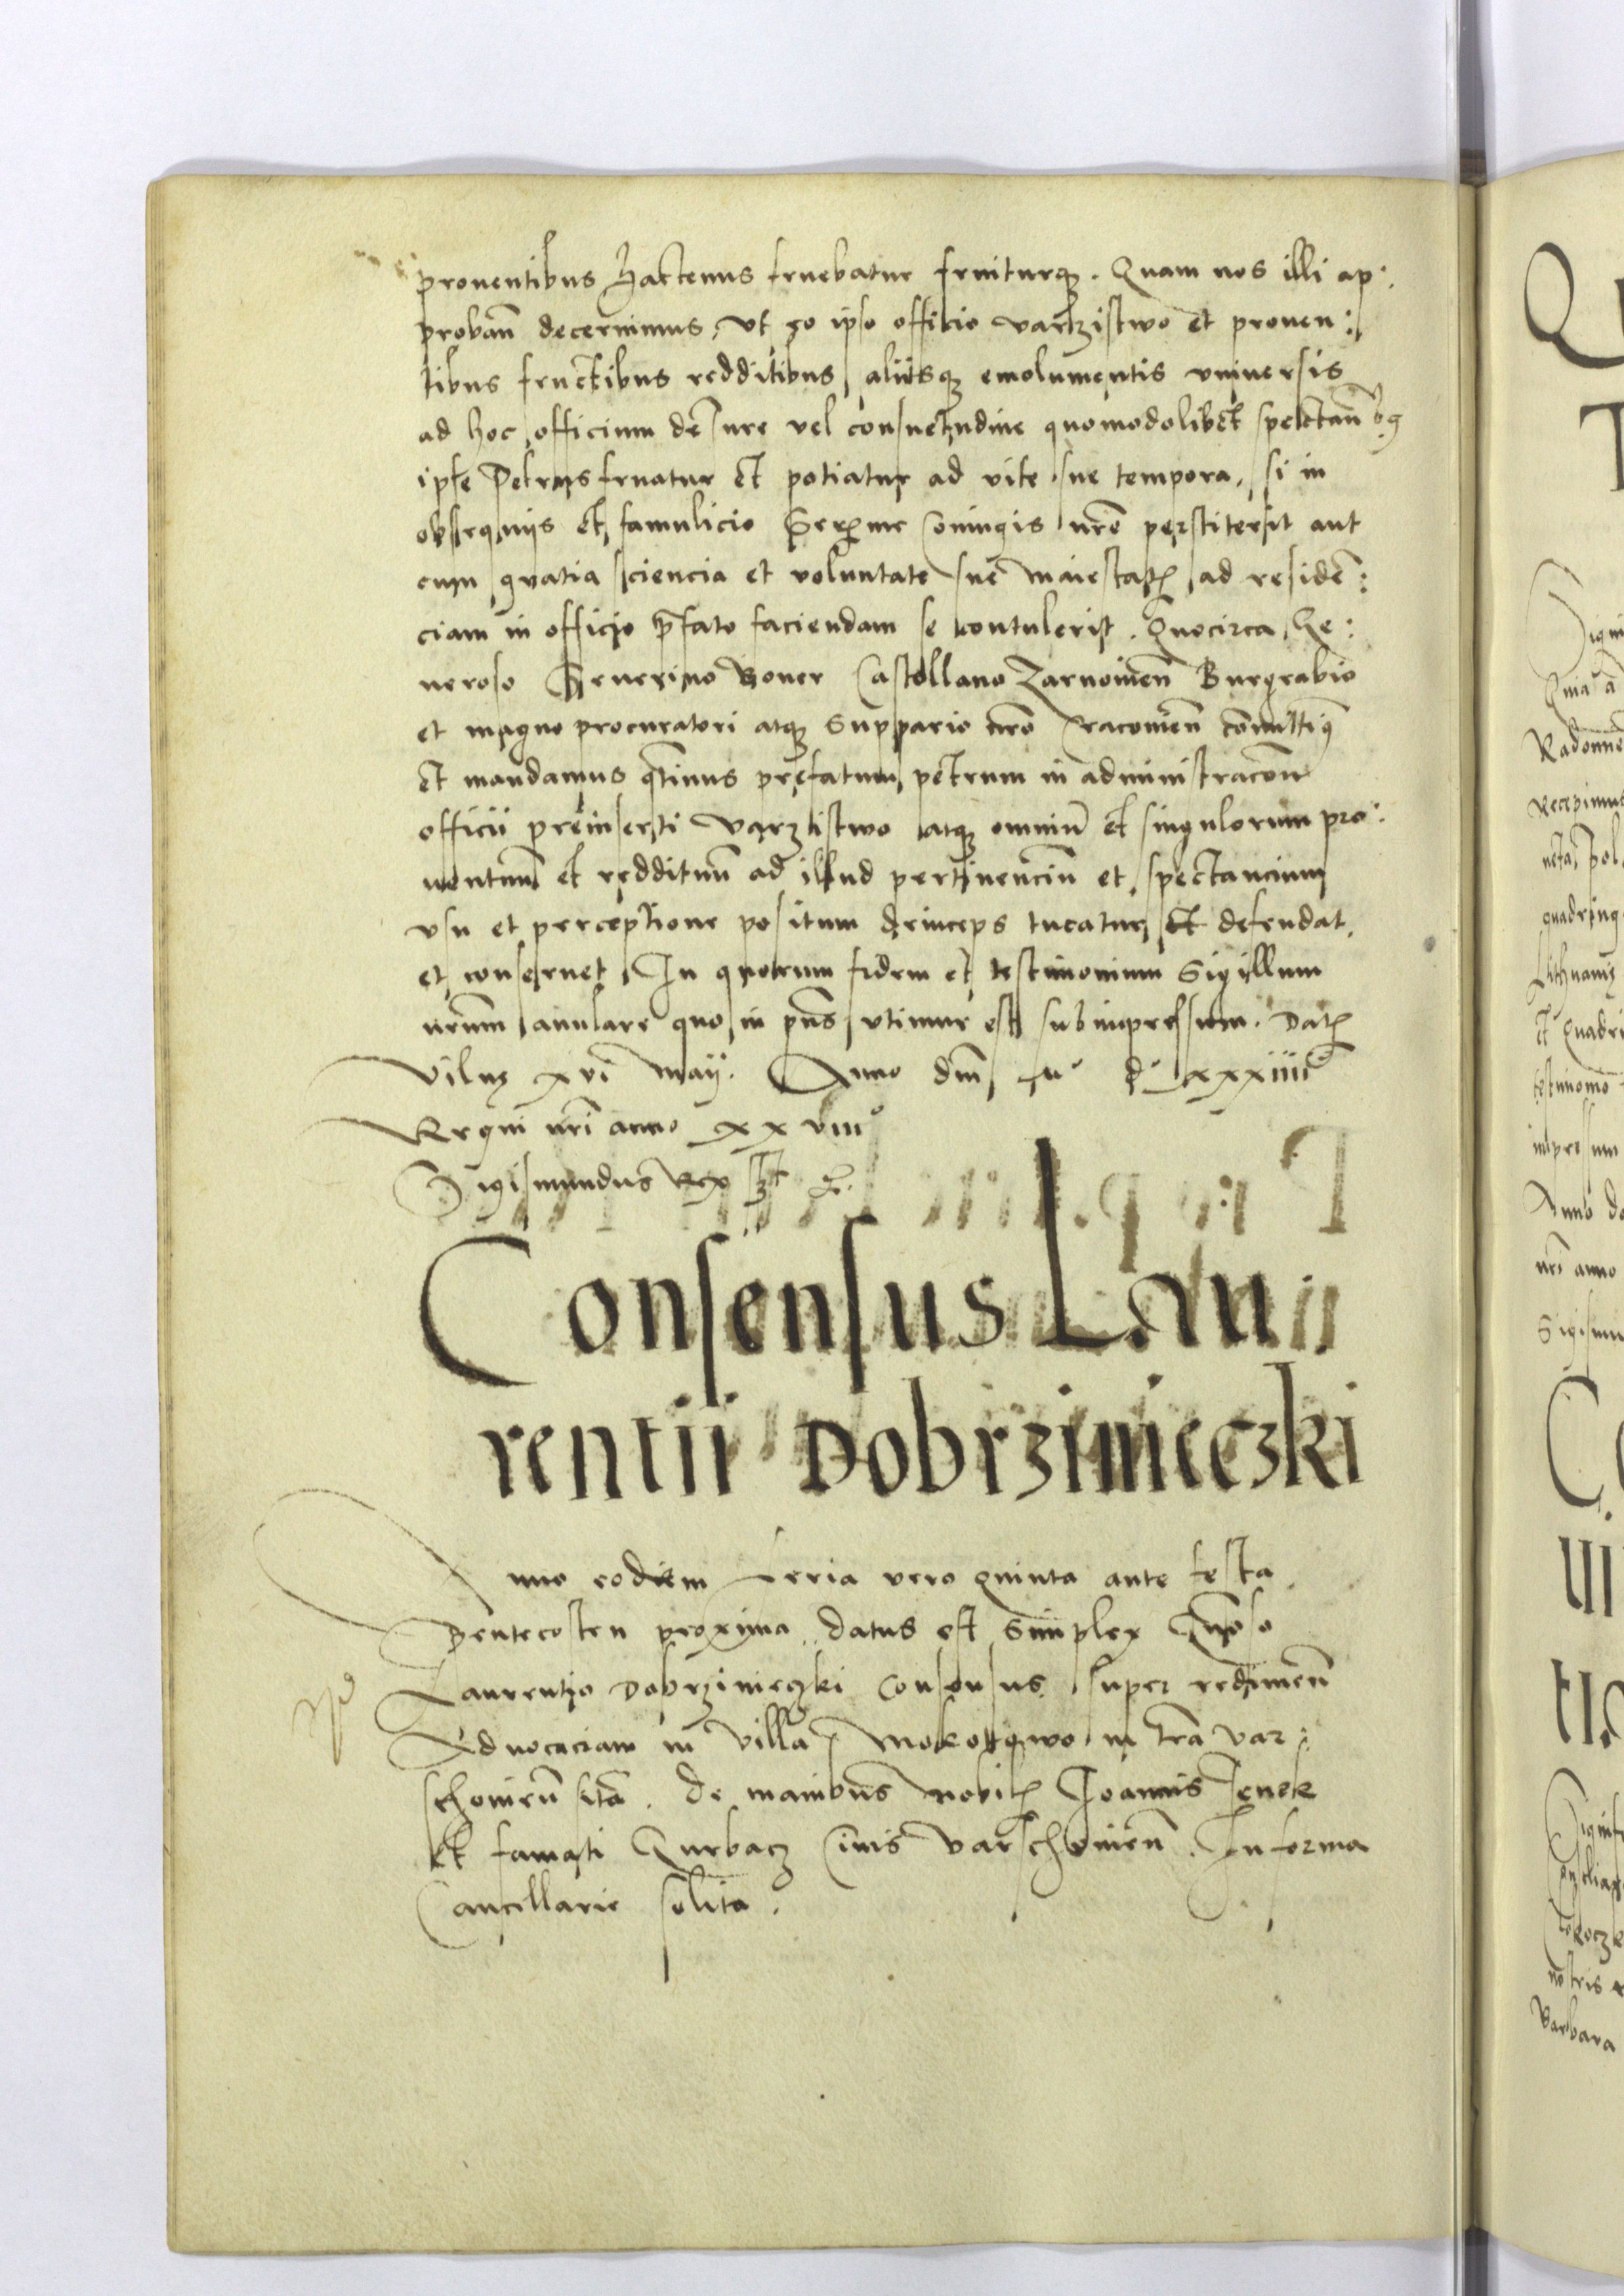 prouentibus hactenus fruebatur fruiturq(ue). Quam nos illi ap:
proban̄ decernimus, vt eo ipso officio vartzistwo et prouen:
tibus fructibus redditibus aliisq(ue) emolumentis vniuersis
ad hoc officium de iure vel consuetudine quomodolibet spectan̄
ipse Petrus fruatur et potiatur ad vite sue tempora, si in
obsequijs et famulicio Coniugis nr̄e perstiterit aut
cum gratia sciencia et voluntate sue Maiestatꝭ ad residē:
ciam in officio p̄fato faciendam se contulerit. Quocirca Ge:
neroso Seuerino Boner Castellano Zarnouien̄ Burgrabio
et magno procuratori atq(ue) Suppario nr̄o Cracouien̄ committimꝰ
et mandamus q̄tinus prefatum petrum in administracōne
officii preinserti varztistwo atq(ue) omniū et singulorum pro:
uentuum et reddituum ad illud pertinenciū et spectancium
vsu et perceptione positum deinceps tueatur et defendat,
et conseruet In quorum fidem et testimonium Sigillum
nr̄um anulare quo in p̄ns vtimur est subimpressum. Datꝭ
Vilnę xvi maij. Anno dm̄ Mº dº xxxiiiiº
Regni nr̄i anno xxviiiº
Sigismundus Rex sst
Consensus Lau
rentii Dobrziinieczki
Anno eodem Feria vero quinta ante festa
Pentecosten proxima datus est Simplex Gn̄oso
Laurentio Dobrzinieczki Consensus super redimen̄
Aduocaciam in villa Mokothowo in tr̄a var:
schouien̄ sitā. de manibus nobilꝭ Joannis Jenek
et famati Curbacz Ciuis varschouien̄. In forma
Cancellarie solita.
Q
T
Quia a
Radomien̄
Recepimus
quadring
Lithuanię
et Quadri
testimonio
impressum
Anno do
nr̄i anno
Sigismu
Co
ui
tio
nostris
Barbara